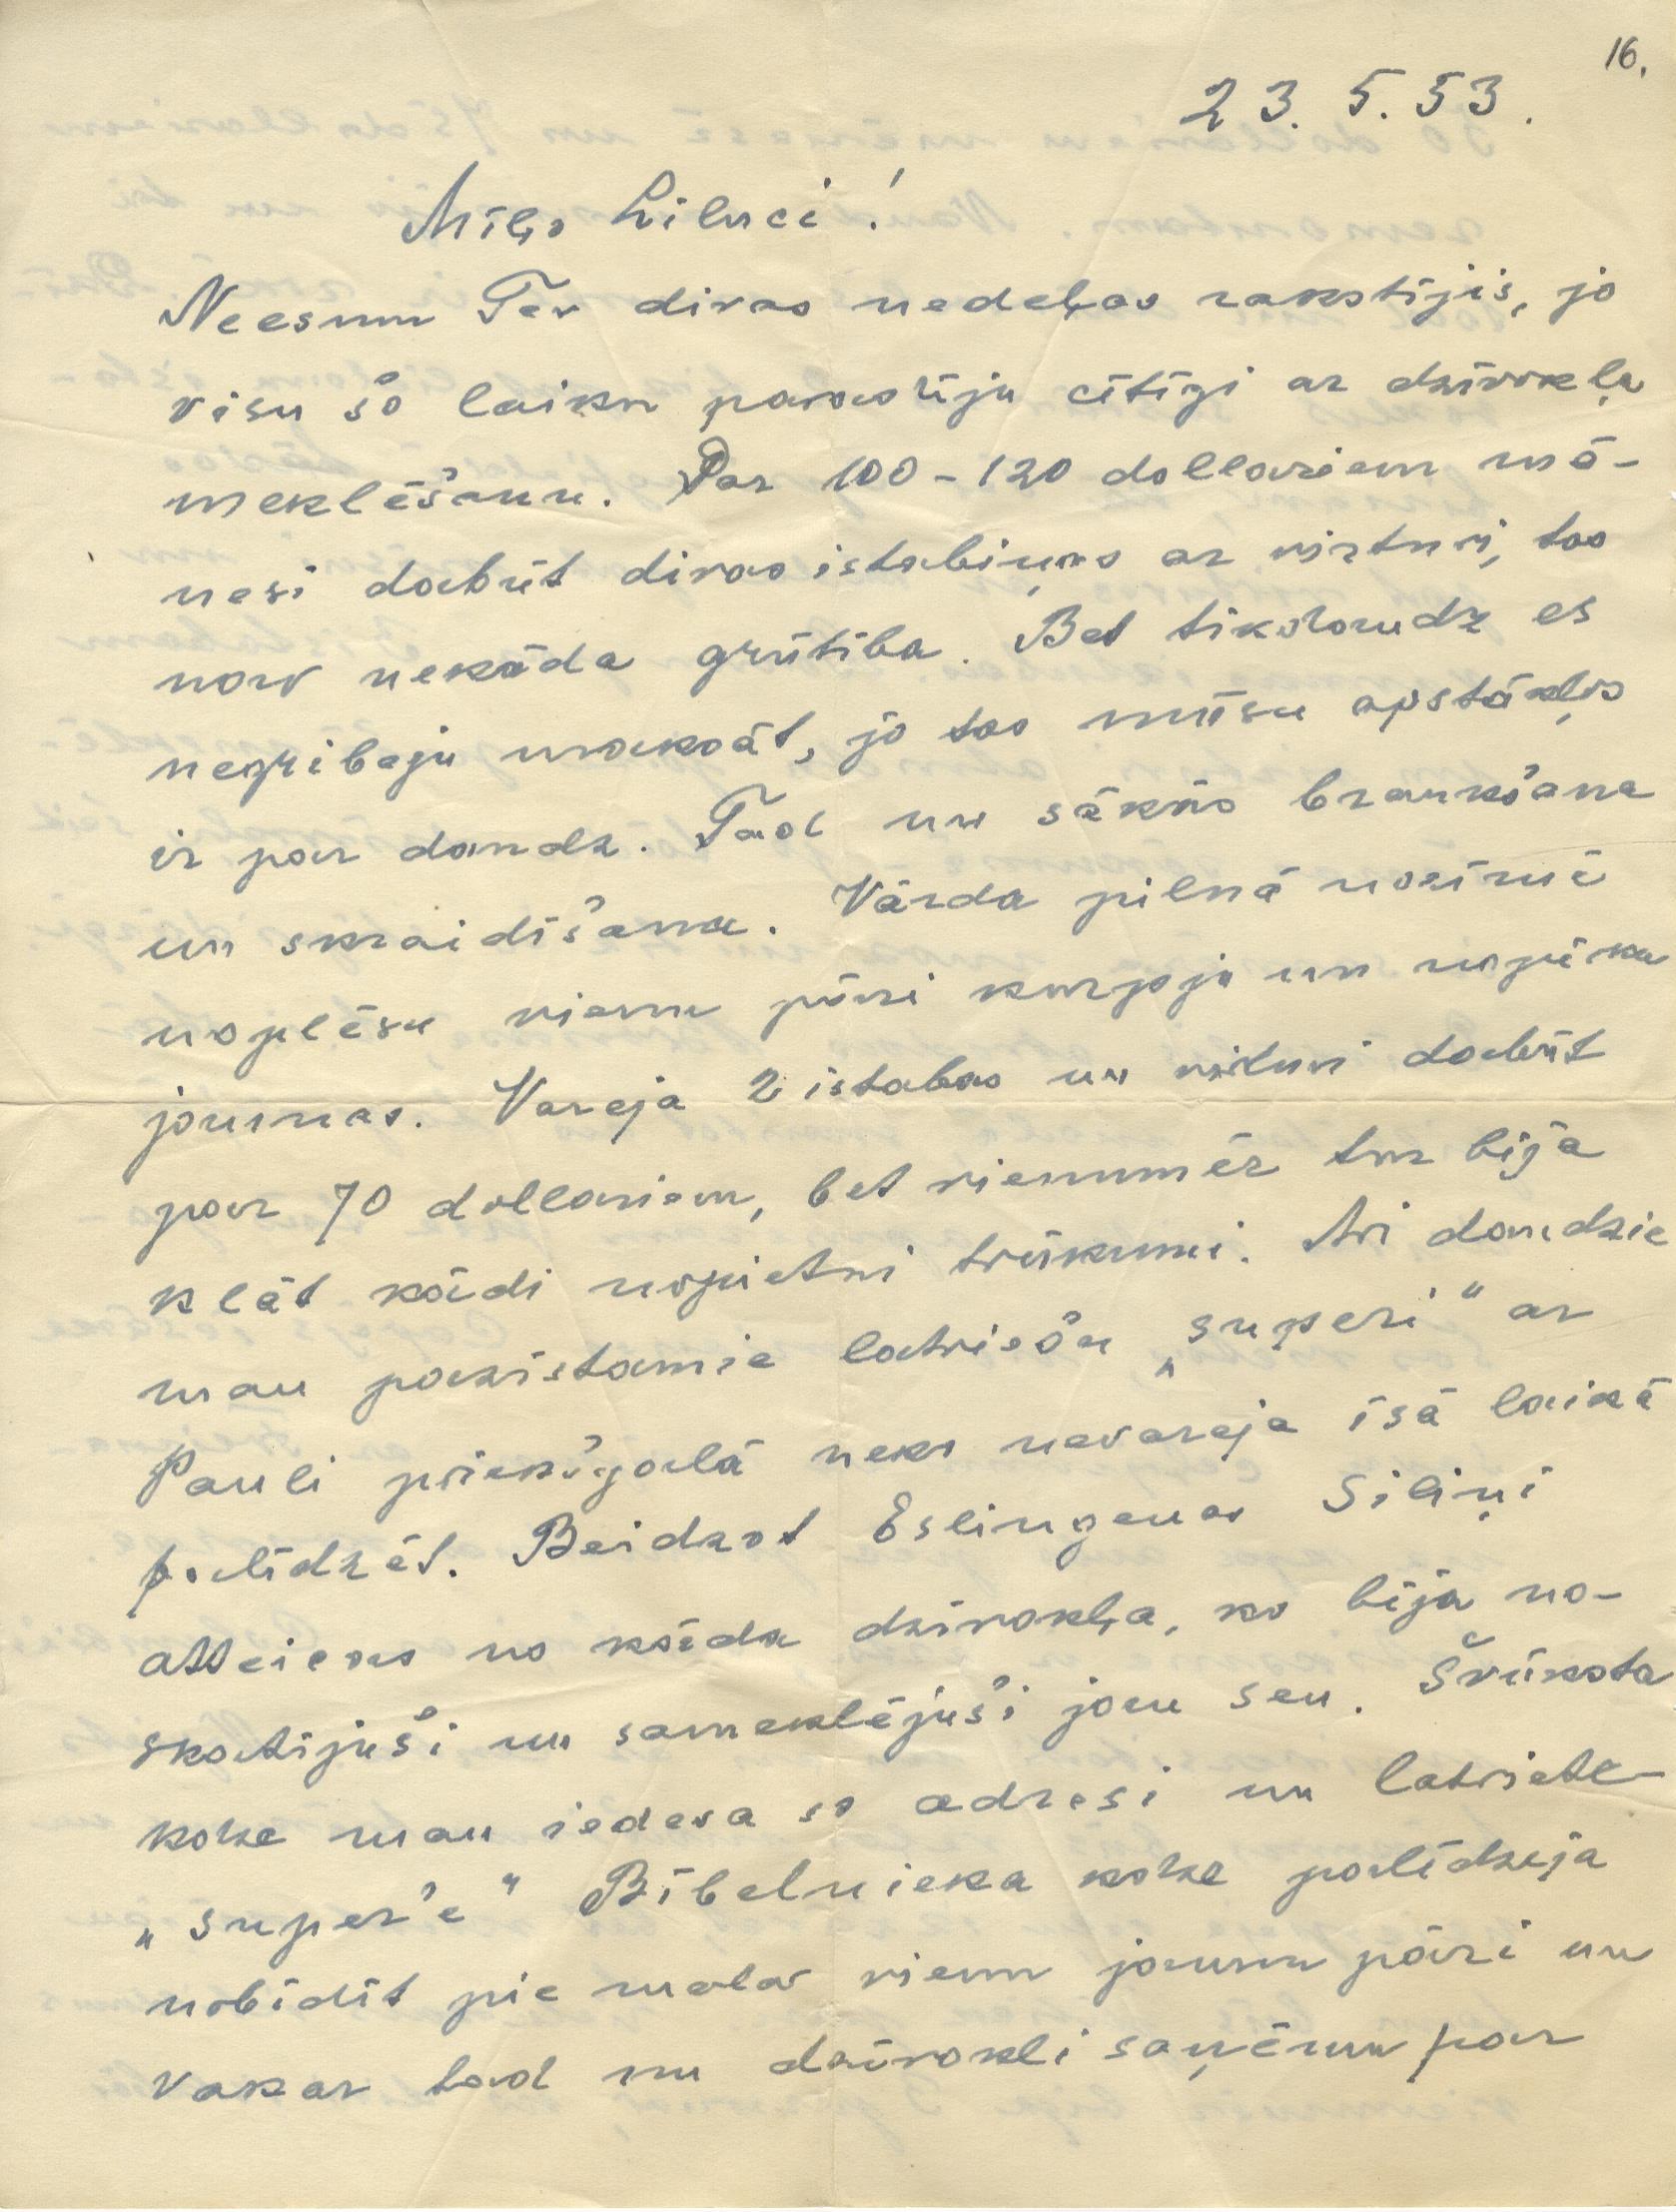 16.
23. 5. 53.
Mīļo Liluci!
Neesmu Tev divas nedeļas rakstījis, jo
visu šo laiku pavadīju cītīgi ar dzīvokļa
meklēšanu. Par 100-120 dollariem mē-
nesi dabūt divas istabiņas ar virtuvi, tas
nav nekāda grūtība. Bet tikdaudz es
negribeju maksāt, jo tas mūsu apstākļos
ir par daudz. Tad nu sākās braukšana
un skraidīšana. Vārda pilnā nozīmē
noplēsu vienu pāri kurpju un nopirku
jaunas. Vareja 2 istabas un virtuvi dabūt
par 70 dollariem, bet vienmēr tur bija
klāt kādi nopietni trūkumi. Arī daudzie
man pazīstamie latviešu „superi" ar
Pauli priekšgalā neko nevareja īsā laikā
palīdzēt. Beidzot Eslingenas Siliņi
atteicās no kāda dzīvokļa, ko bija no-
skatījuši un sameklējuši jau sen. Švūksta
kdze man iedeva so adresi un latviete
„super'e" Bībelnieka kdze palīdzeja
nobīdīt pie malas vienu jaunu pāri un
vakar tad nu dzīvokli saņēmu par